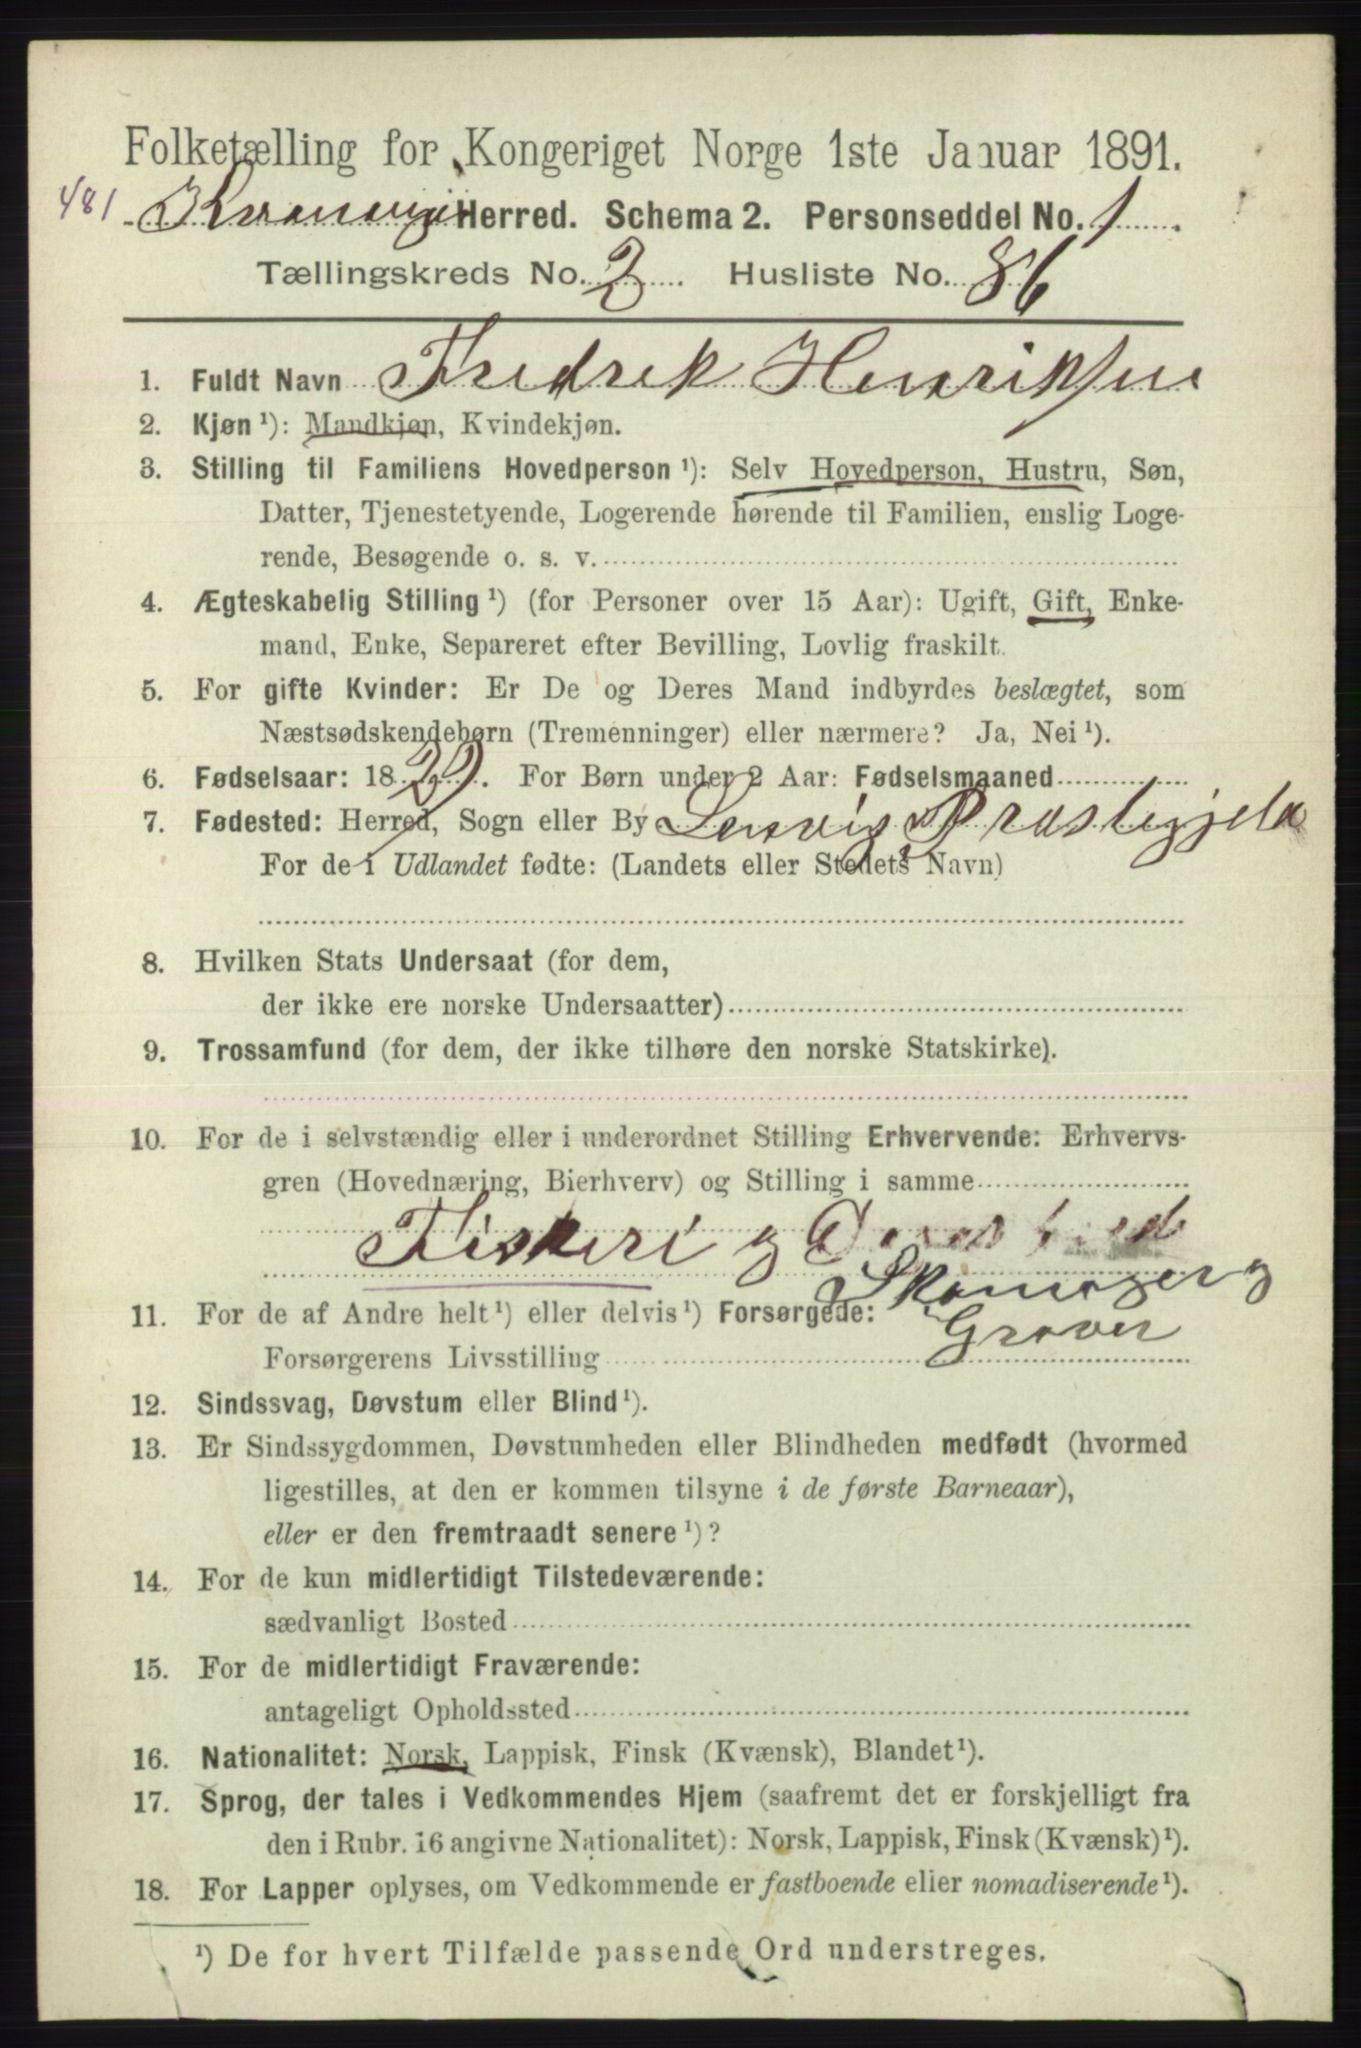 Folketælling for Kongeriget Norge 1ste Januar 1891.
481 Kvænangen Herred. Schema 2. Personseddel No. 1.
Tællingskreds No. 2. Husliste No. 86
1. Fuldt Navn Fredrek Henriksen
2. Kjøn ¹): Mandkjøn, Kvindekjøn.
3. Stilling til Familiens Hovedperson ¹): Selv Hovedperson, Hustru, Søn,
Datter, Tjenestetyende, Logerende hørende til Familien, enslig Loge-
rende, Besøgende o. s. v.
4. Ægteskabelig Stilling ¹) (for Personer over 15 Aar): Ugift, Gift, Enke-
mand, Enke, Separeret efter Bevilling, Lovlig fraskilt.
5. For gifte Kvinder: Er De og Deres Mand indbyrdes beslægtet, som
Næstsødskendebørn (Tremenninger) eller nærmere? Ja, Nei ¹).
6. Fødselsaar: 18 . For Børn under 2 Aar: Fødselsmaaned
7. Fødested: Herred, Sogn eller By Lenvig Prestegjeld
For de i Udlandet fødte: (Landets eller Stedets Navn)
8. Hvilken Stats Undersaat (for dem,
der ikke ere norske Undersaatter)
9. Trossamfund (for dem, der ikke tilhøre den norske Statskirke).
10. For de i selvstændig eller i underordnet Stilling Erhvervende: Erhvervs-
gren (Hovednæring, Bierhverv) og Stilling i samme
Fiskeri og
Skomager og
11. For de af Andre helt ¹) eller delvis ¹) Forsørgede: Graver
Forsørgerens Livsstilling
12. Sindssvag, Døvstum eller Blind ¹).
13. Er Sindssygdommen, Døvstumheden eller Blindheden medfødt (hvormed
ligestilles, at den er kommen tilsyne i de første Barneaar),
eller er den fremtraadt senere ¹)?
14. For de kun midlertidigt Tilstedeværende:
sædvanligt Bosted
15. For de midlertidigt Fraværende:
antageligt Opholdssted
16. Nationalitet: Norsk, Lappisk, Finsk (Kvænsk), Blandet ¹).
17. Sprog, der tales i Vedkommendes Hjem (saafremt det er forskjelligt fra
den i Rubr. 16 angivne Nationalitet): Norsk, Lappisk, Finsk (Kvænsk) ¹).
18. For Lapper oplyses, om Vedkommende er fastboende eller nomadiserende ¹).
¹) De for hvert Tilfælde passende Ord understreges.